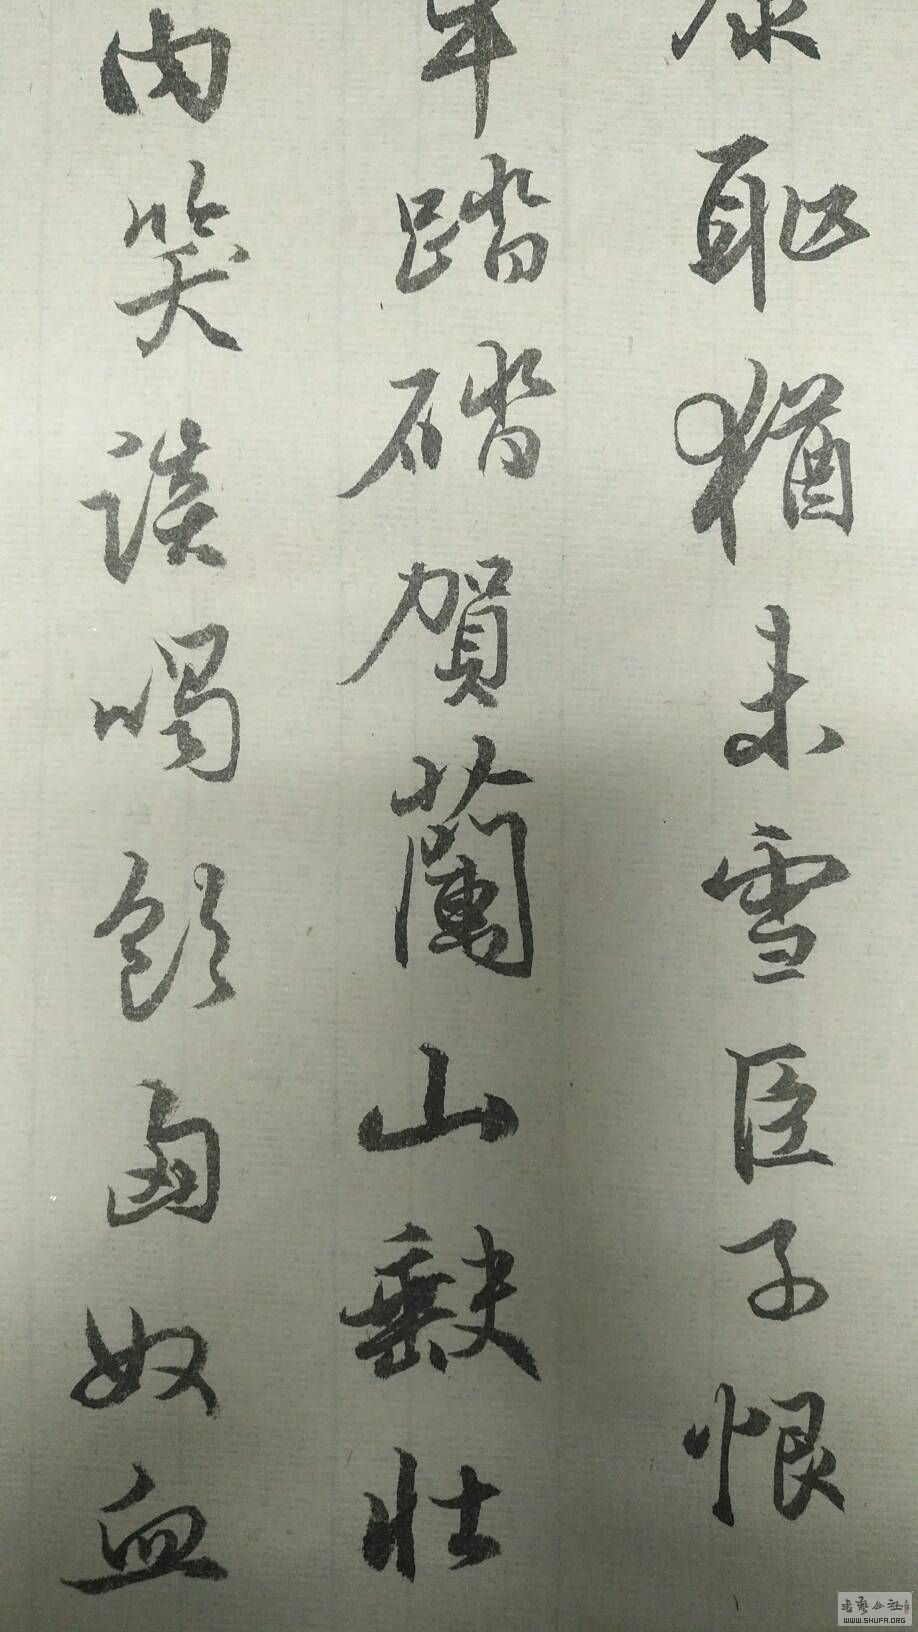 耻猶未雪臣子恨
踏賀蘭山缺壯
肉笑談喝飲匈奴血
書藝公社
WWW.SHUFA.ORG